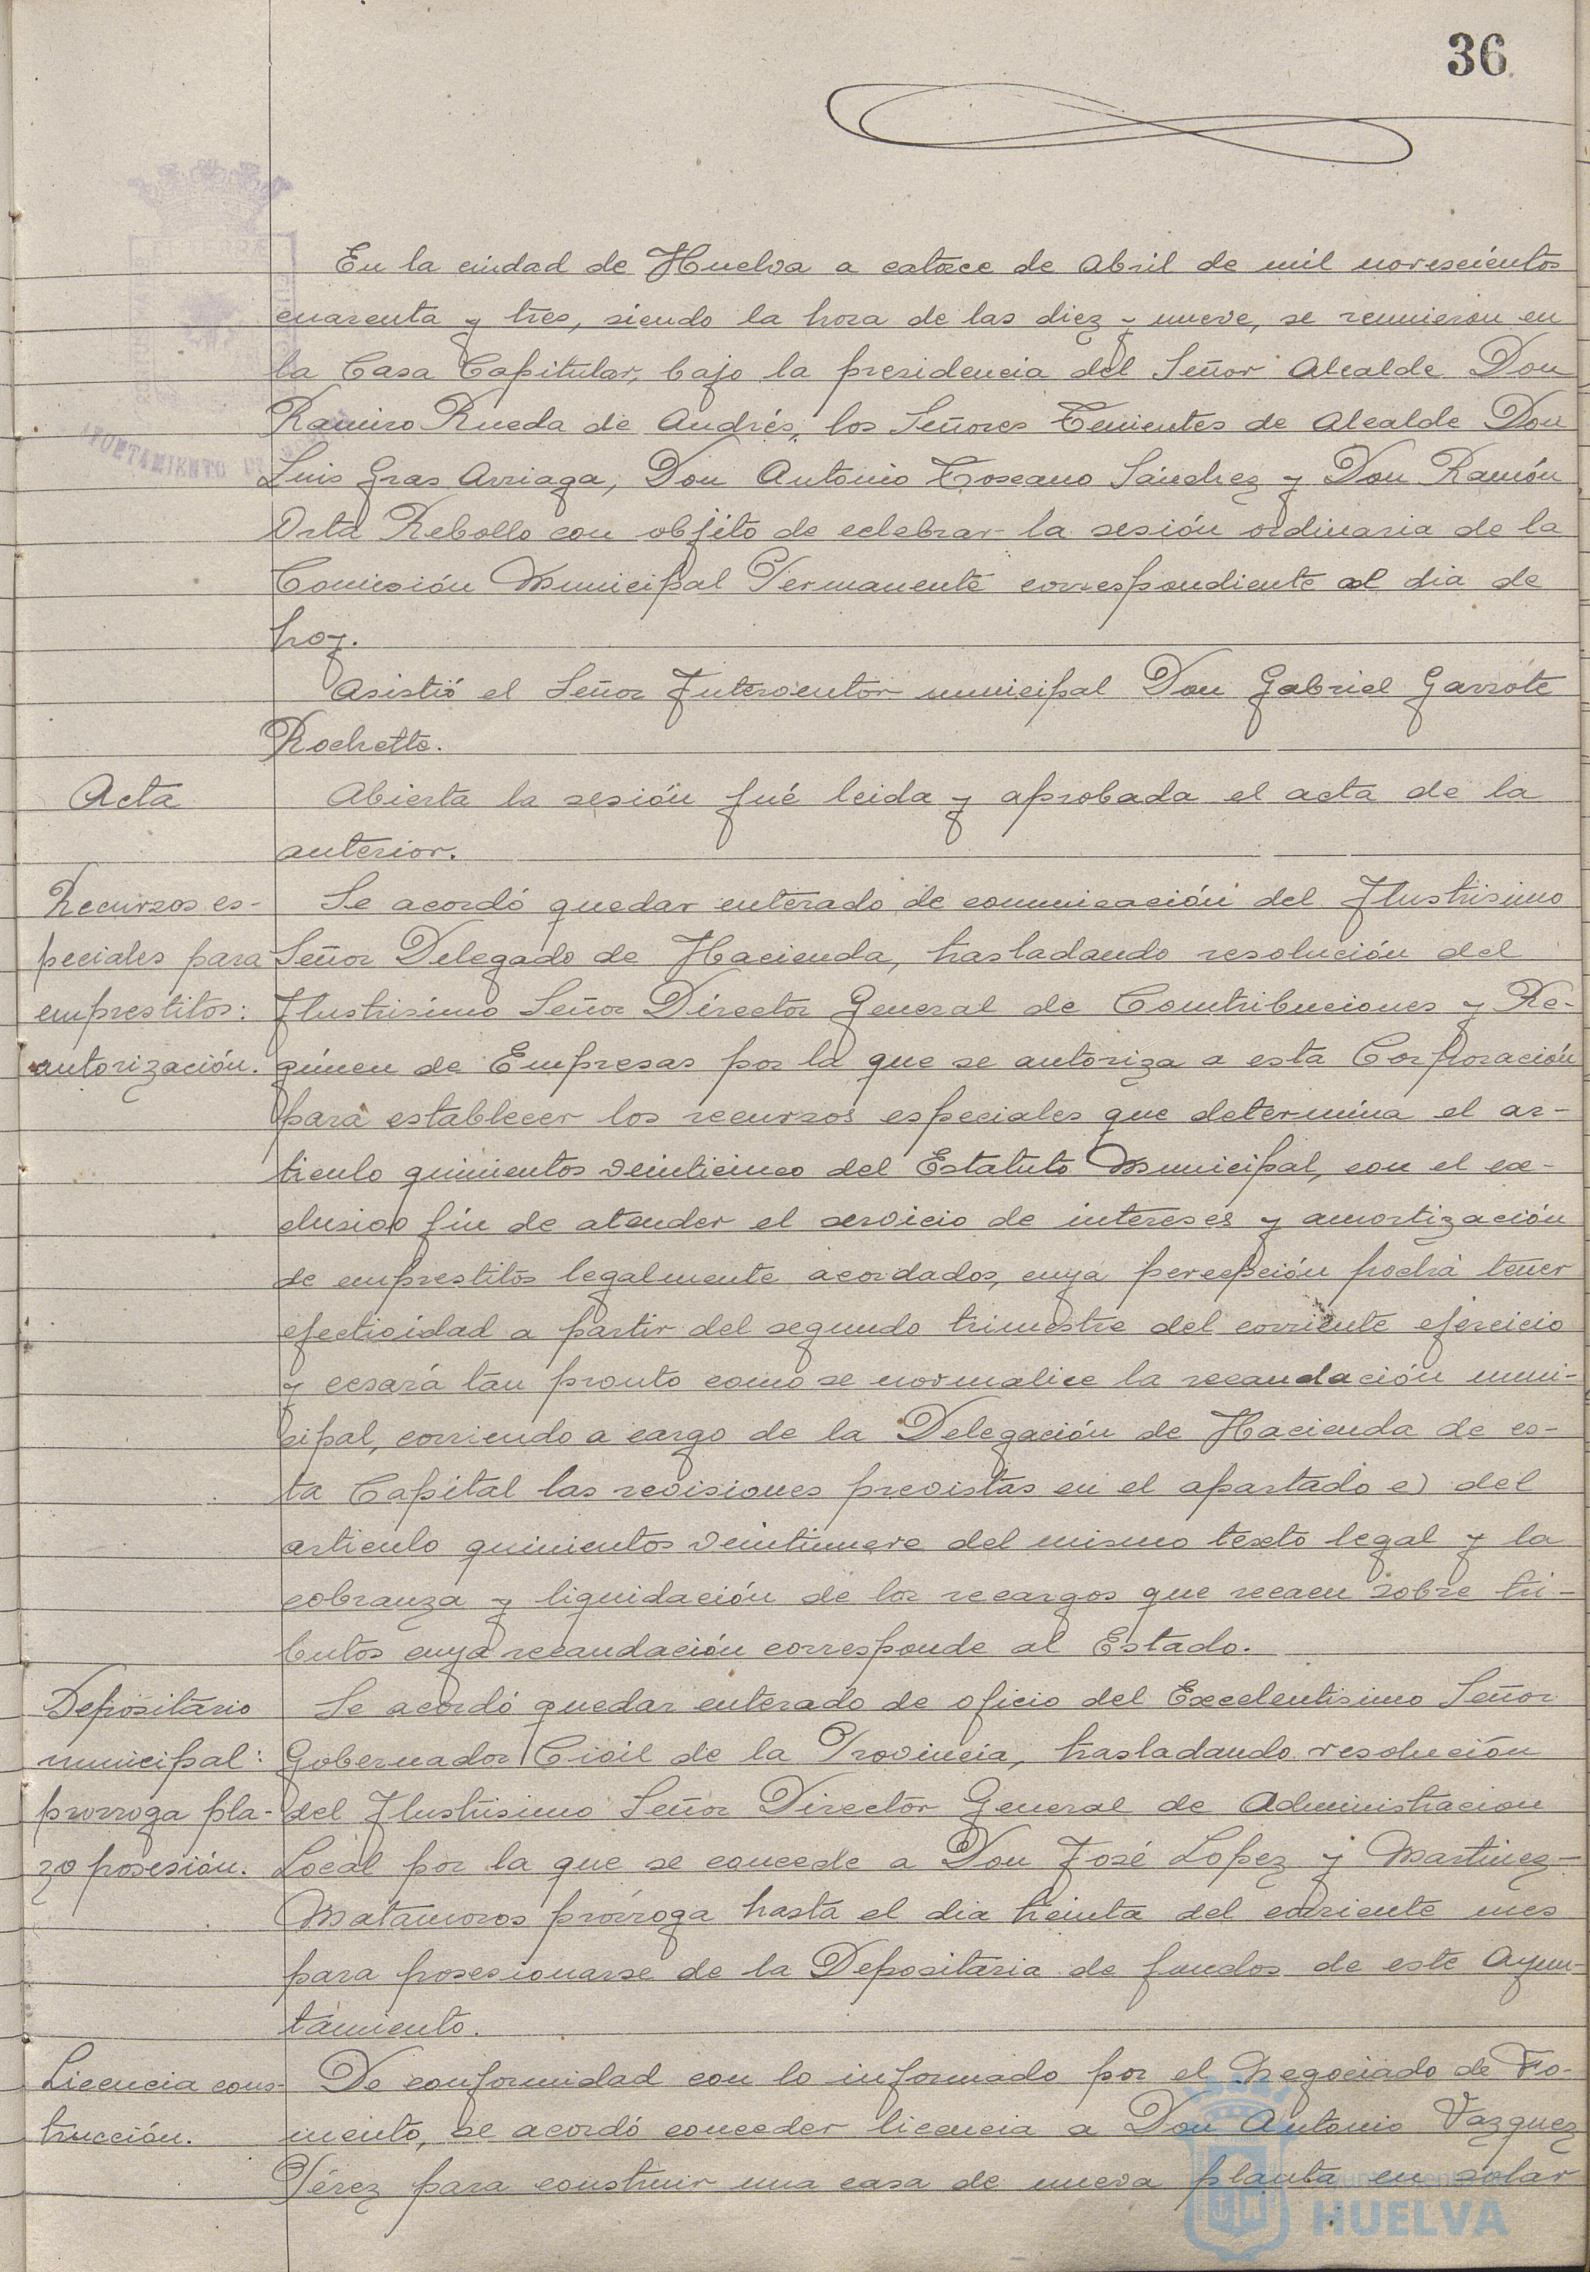 36
En la ciudad de Huelva a catorce de Abril de mil novescientos
cuarenta y tres, siendo la hora de las diez y nueve, se reunieron en
la Casa Capitular, bajo la presidencia del Señor Alcalde Don
Ramiro Rueda de Andrés, los Señores Tenientes de Alcalde Don
AYUNTAMIENTO DE
Luis Gras Arriaga, Don Antonio Toscano Sánchez y Don Ramón
Orta Rebollo con objeto de celebrar la sesión ordinaria de la
Comisión Municipal Permanente correspondiente al dia de
hoy.
Asistió el Señor Interventor municipal Don Gabriel Garrote
Rochette.
Acta
Abierta la sesión fué leida y aprobada el acta de la
anterior.
Recursos es-
peciales para
emprestitos:
autorización.
Se acordó quedar enterado de comunicación del Ilustrisimo
Señor Delegado de Hacienda, trasladando resolución del
Ilustrisimo Señor Director General de Contribuciones y Re-
gimen de Empresas por la que se autoriza a esta Corporación
para establecer los recursos especiales que determina el ar-
ticulo quinientos veinticinco del Estatuto Municipal, con el ex-
clusivo fin de atender el servicio de intereses y amortización
de emprestitos legalmente acordados, cuya percepción podrá tener
efectividad a partir del segundo trimestre del corriente ejercicio
y cesará tan pronto como se normalice la recaudación muni-
cipal, corriendo a cargo de la Delegación de Hacienda de es-
ta Capital las revisiones previstas en el apartado e) del
articulo quinientos veintinueve del mismo texto legal y la
cobranza y liquidación de los recargos que recaen sobre tri-
butos cuya recaudación corresponde al Estado.
Depositario
municipal:
prorroga pla-
zo posesión.
Se acordó quedar enterado de oficio del Excelentisimo Señor
Gobernador Civil de la Provincia, trasladando resolución
del Ilustrisimo Señor Director General de Administracion
Local por la que se concede a Don José Lopez y Martinez-
Matamoros prórroga hasta el dia treinta del corriente mes
para posesionarse de la Depositaria de fondos de este Ayun-
tamiento.
Licencia cons-
trucción.
De conformidad con lo informado por el Negociado de Fo-
mento, se acordó conceder licencia a Don Antonio Vazquez
Pérez para construir una casa de nueva planta en solar
HUELVA